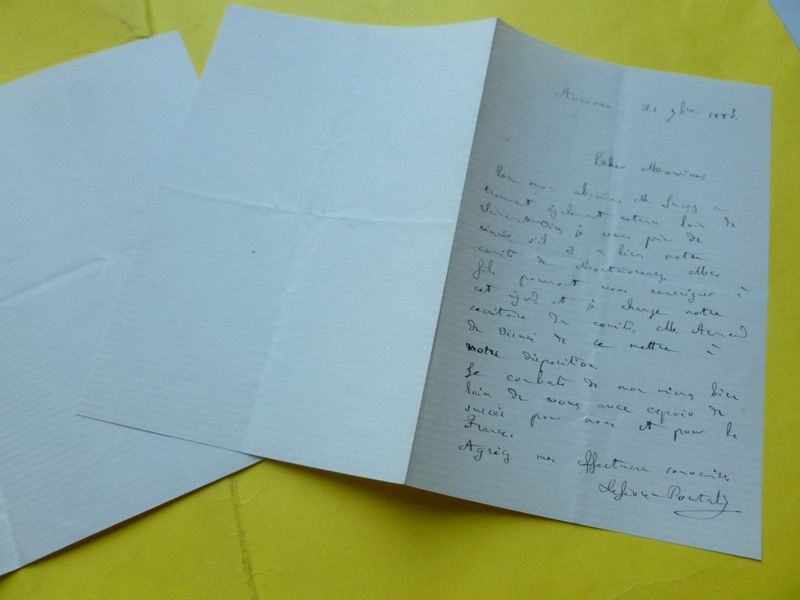 21 9bre
Cher Monsieur
mon absence M.
trouvant également retenu loin de
je vous prie de
réunir, s'il y a lieu notre
comité de Montmorency. Mon
fils pourrait vous renseigner à
cet égard et je charge notre
secrétaire du comité, M. Armand
de de se mettre à
votre disposition.
Je combats de mon mieux bien
loin de vous avec espoir de
succès pour vous et pour la
France.
Agréez mes affectueux
Lefèvre Pontalis